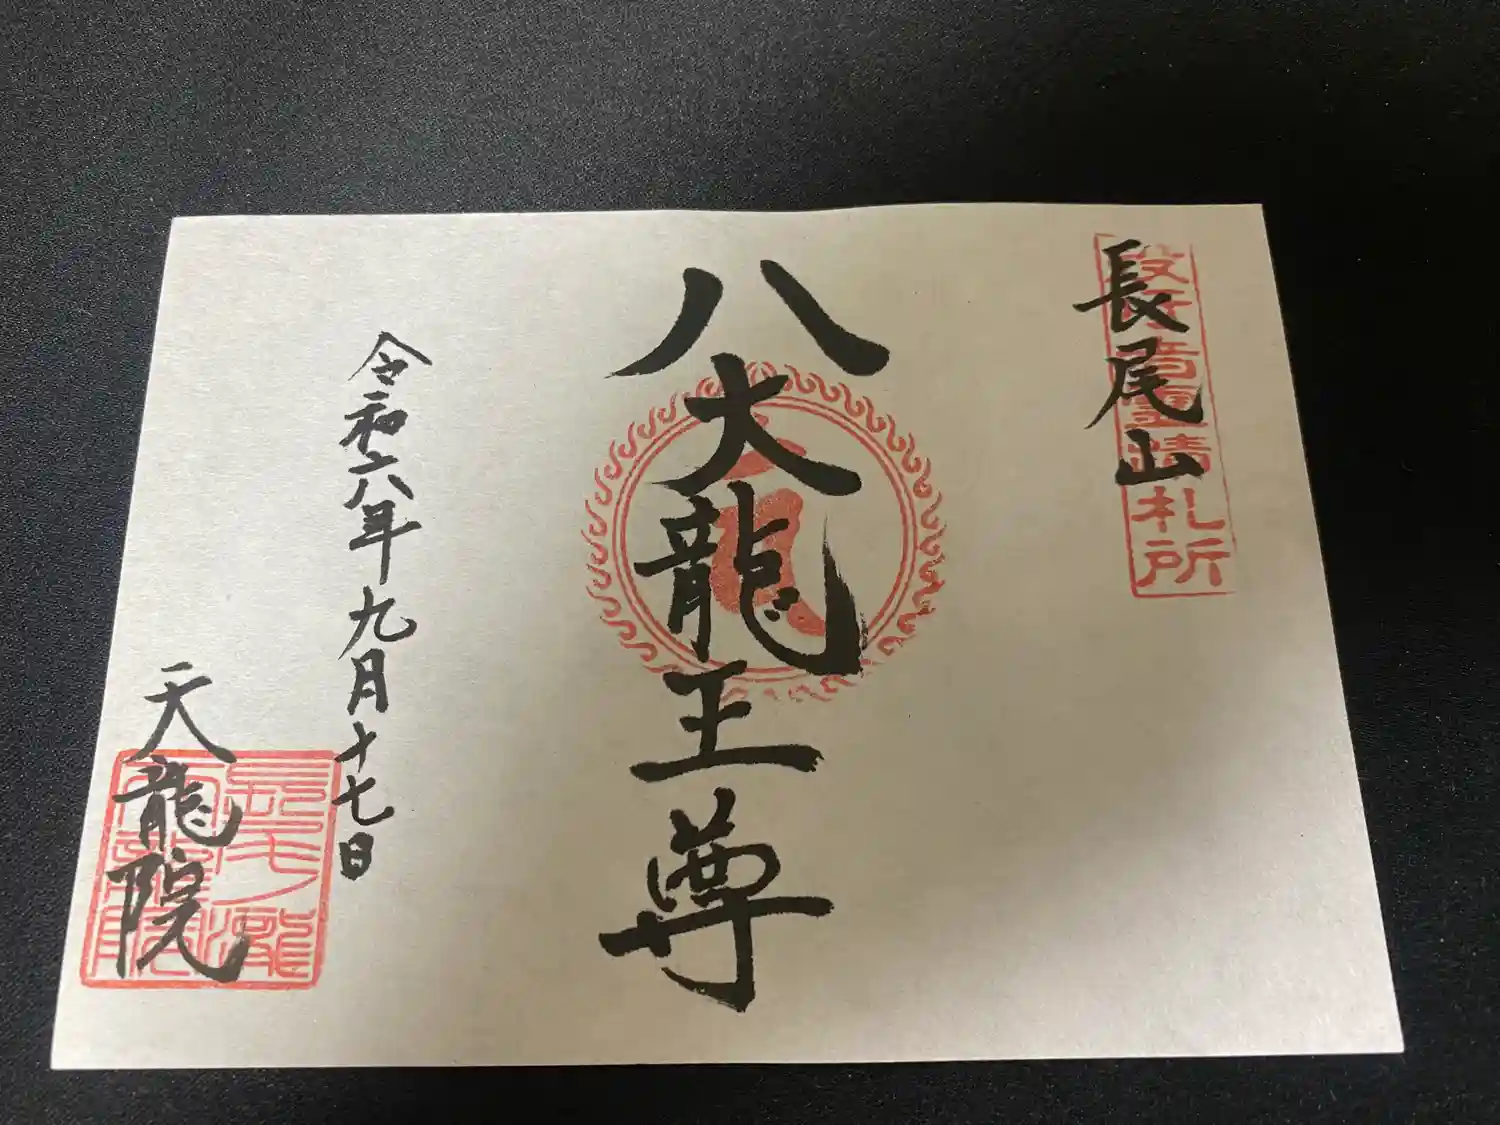 長尾山
札所
八大龍王尊
令和六年九月十七日
天龍院